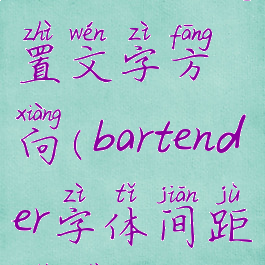 zhì wén zì fāng
置文字方
xiàng
向(bartend
zì tǐ jiān jù
er字体间距